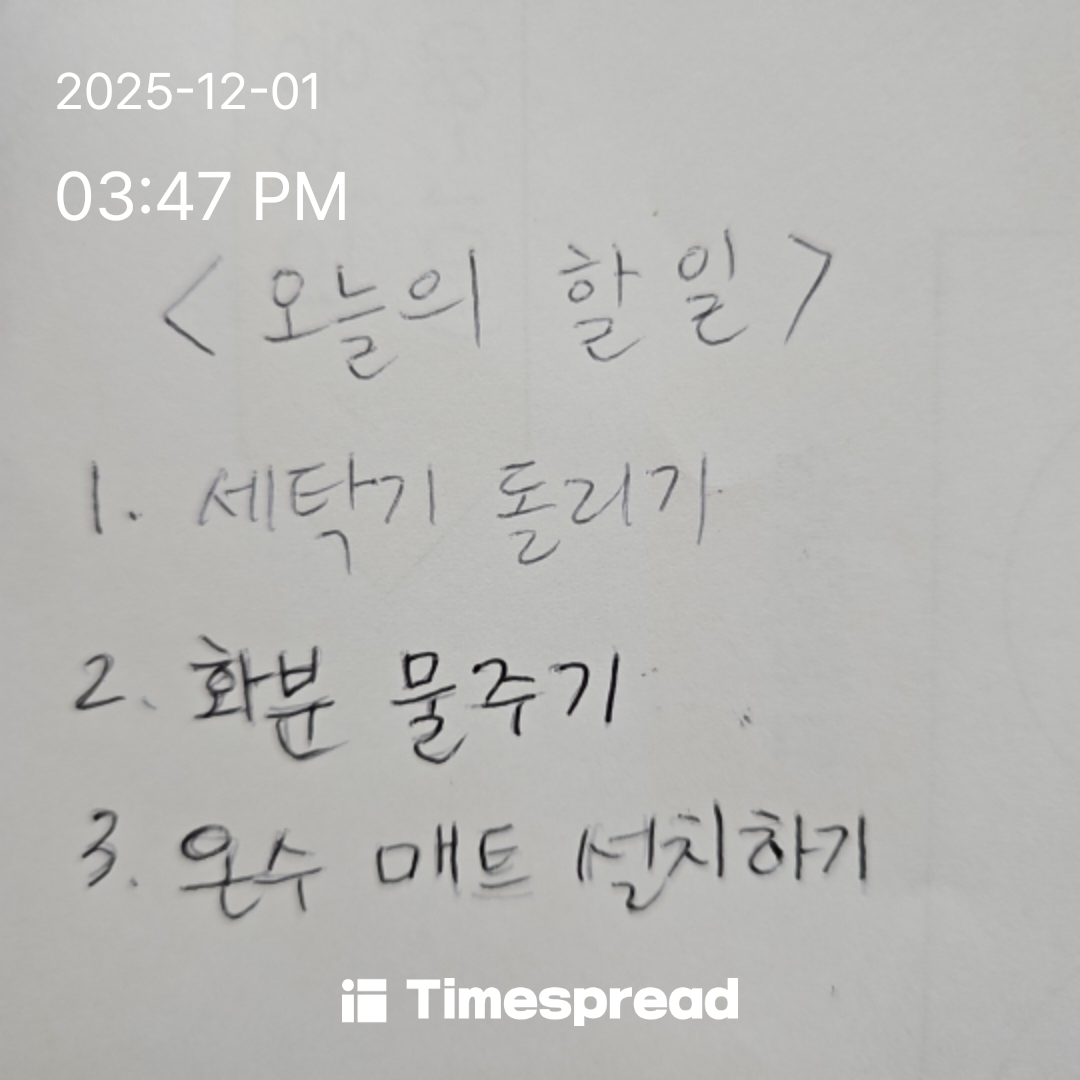 2025-12-01
03:47 PM
<오늘의 할 일>
1. 세탁기 돌리기
2. 화분 물주기
3. 온수 매트 설치하기
Timespread